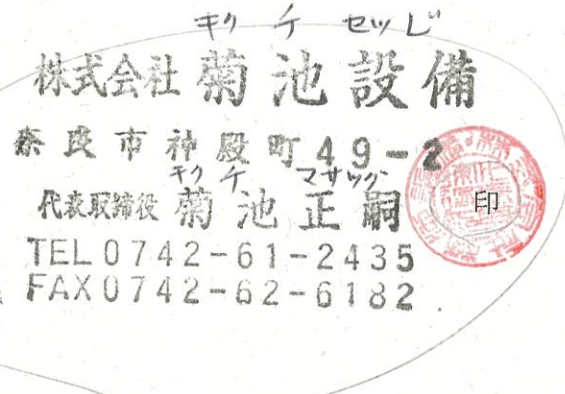 キクチ セツビ
株式会社 菊池設備
奈良市神殿町49-2
キクチ マサツグ
代表取締役 菊池正嗣
印
TEL0742-61-2435
FAX0742-62-6182